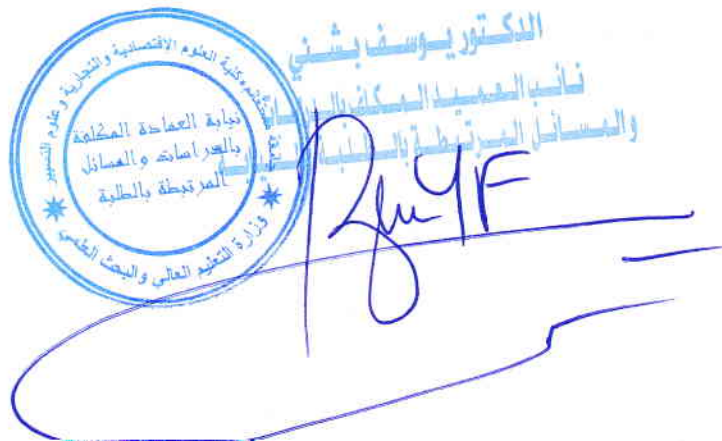 الدكتور يوسف بشني
نائب العميد المكلف بالدراسات
والمسائل المرتبطة بالطلبة
جامعة مستغانم، كلية العلوم الاقتصادية والتجارية وعلوم التسيير
نيابة العمادة المكلفة
بالدراسات والمسائل
المرتبطة بالطلبة
وزارة التعليم العالي والبحث العلمي